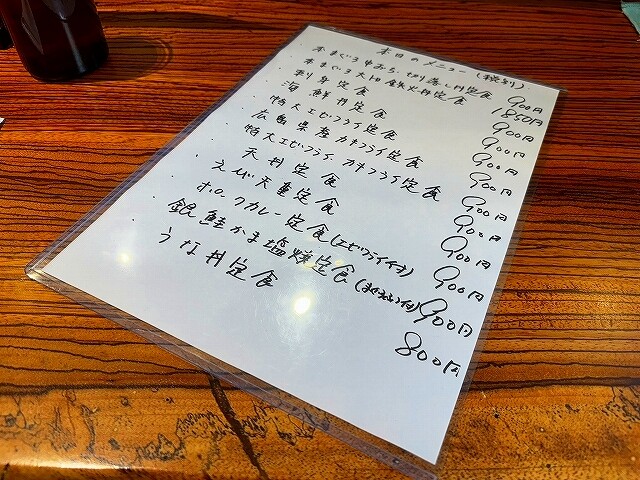 本日のメニュー(税別)
・本まぐろ中おち、切り落し丼定食 900円
・本まぐろ大トロ鉄火丼定食 1850円
・刺身定食 900円
・海鮮丼定食 900円
・特大エビフライ定食 900円
・広島県産カキフライ定食 900円
・特大エビフライ カキフライ定食 900円
・天丼定食 900円
・えび天重定食 900円
・ポークカレー定食(エビフライ付)
・銀鮭かま塩焼定食 900円
・うな丼定食 800円